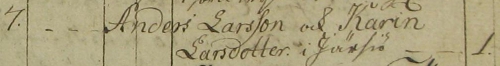 7. - - - Anders Larsson och Karin
Larsdotter. i Järsiö - - - 1.